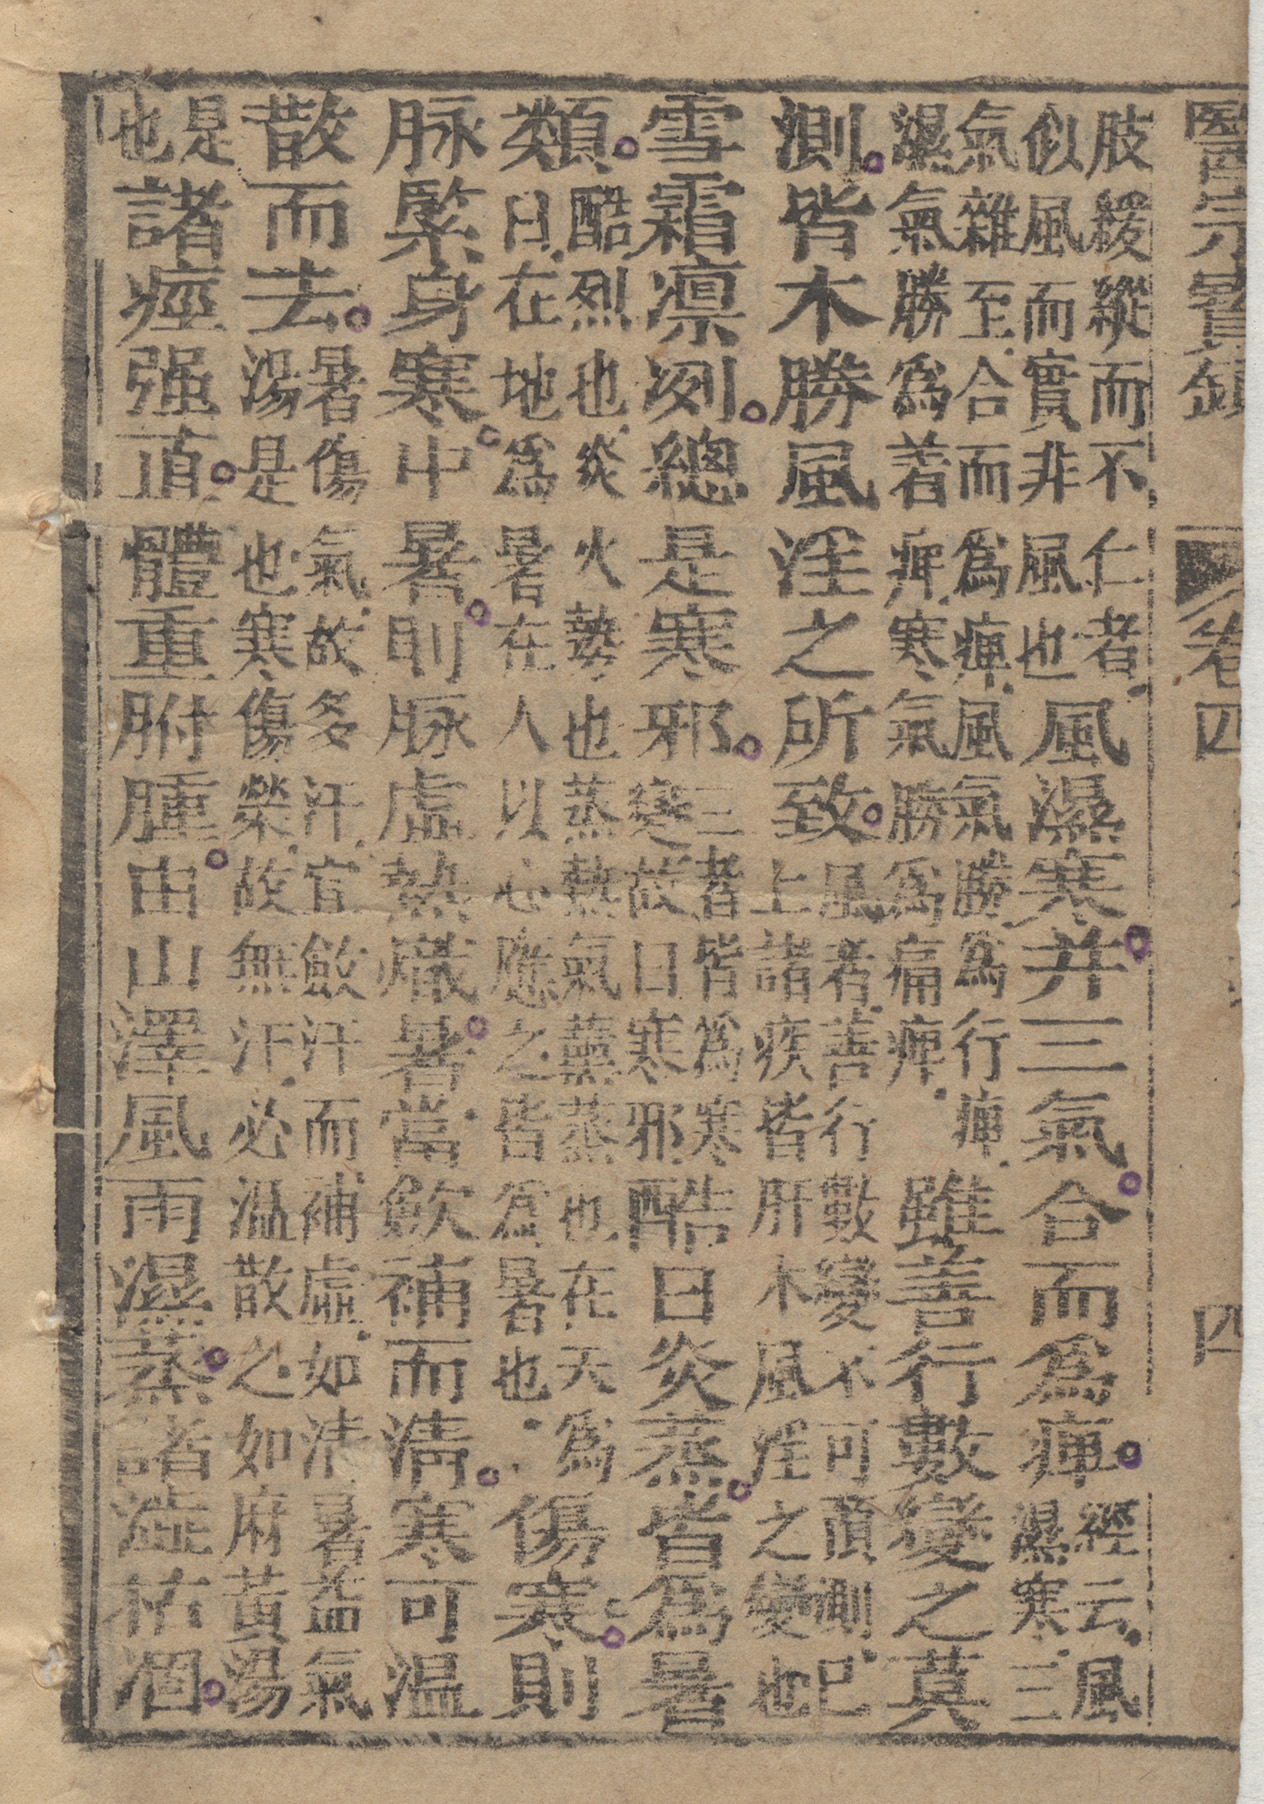 醫宗寶鎮 卷四 四
肢緩縱而不仁者
似風而實非風也
風濕寒并三氣合而為痺
經云風
濕寒三
氣雜至合而為痺風氣勝為行痺
濕氣勝為着痺寒氣勝為痛痺
雖善行數變之莫
測皆木勝風淫之所致
風者善行數變不可預測巳
上諸疾皆肝木風淫之變也
雪霜凛冽總是寒邪
三者皆為寒
變故曰寒邪
酷日炎蒸皆為暑
類
酷烈也炎火勢也蒸熱氣薰蒸也在天為
日在地為暑在人以心應之皆為暑也
傷寒則
脉緊身寒中暑則脉虛熱熾暑當歛補而清寒可温
散而去
暑傷氣故多汗宜歛汗而補虛如清暑益氣
湯是也寒傷榮故無汗必温散之如麻黃湯
是
也
諸痙强直體重胕腫由山澤風雨濕蒸諸澁枯涸